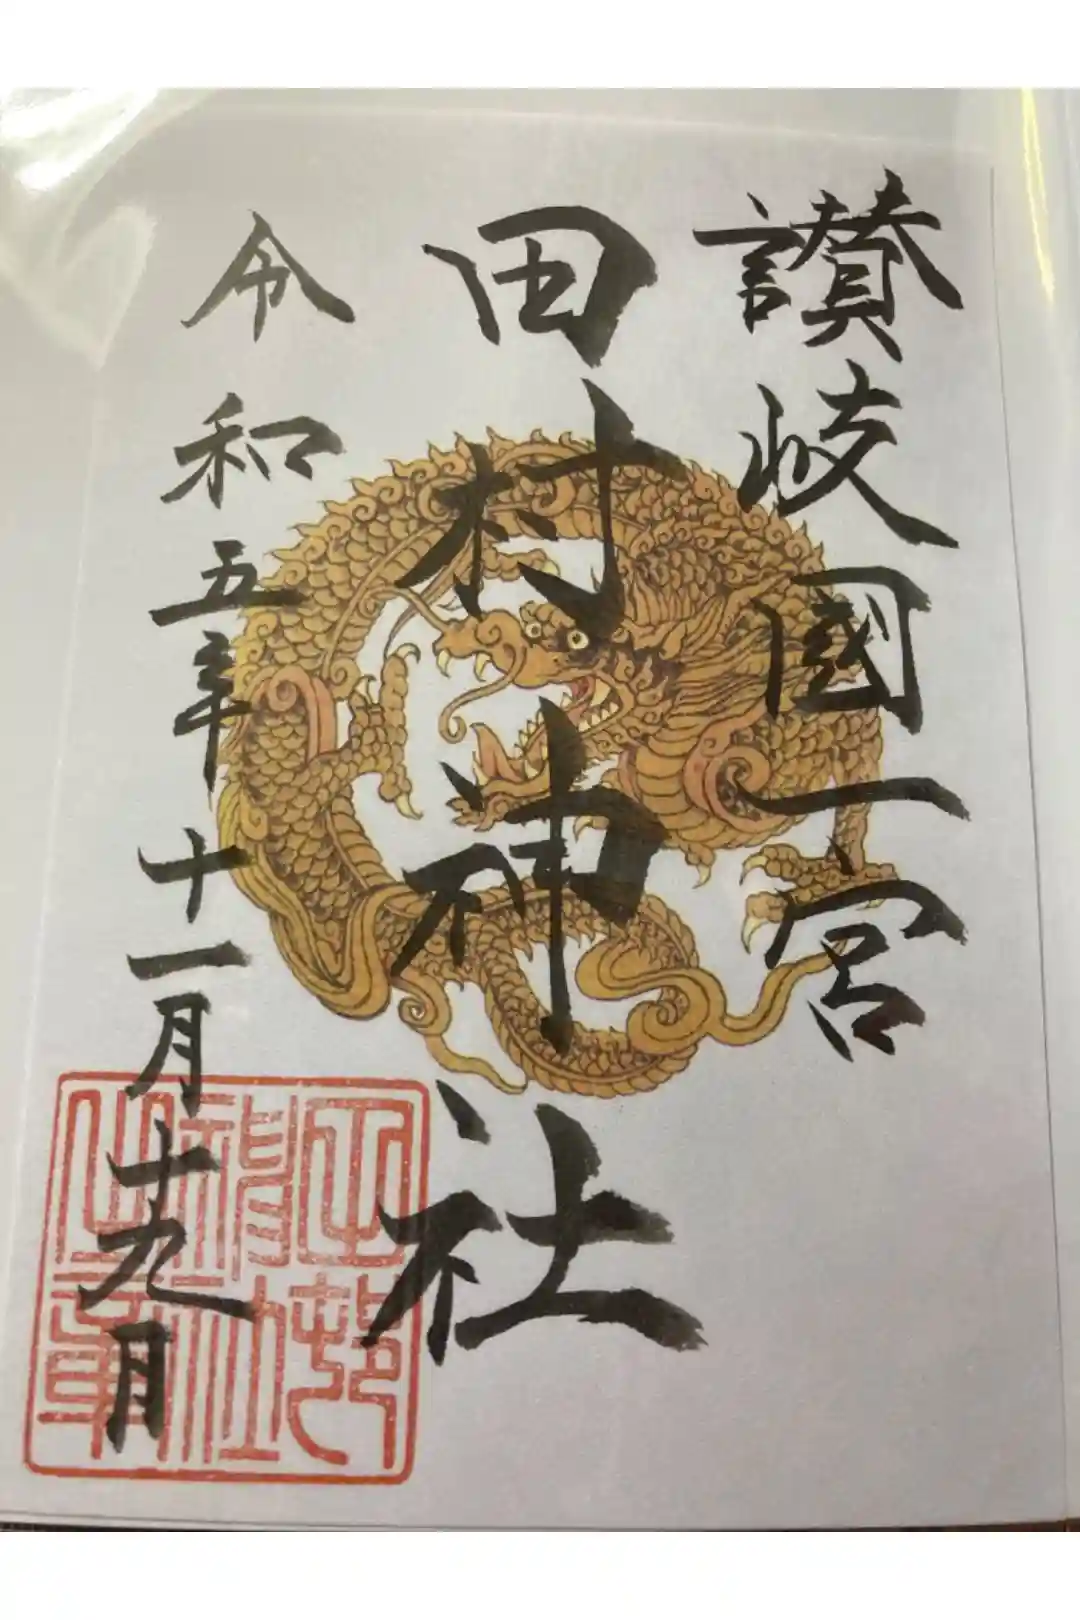 讃岐國一宮
田村神社
令和五年十一月十九日